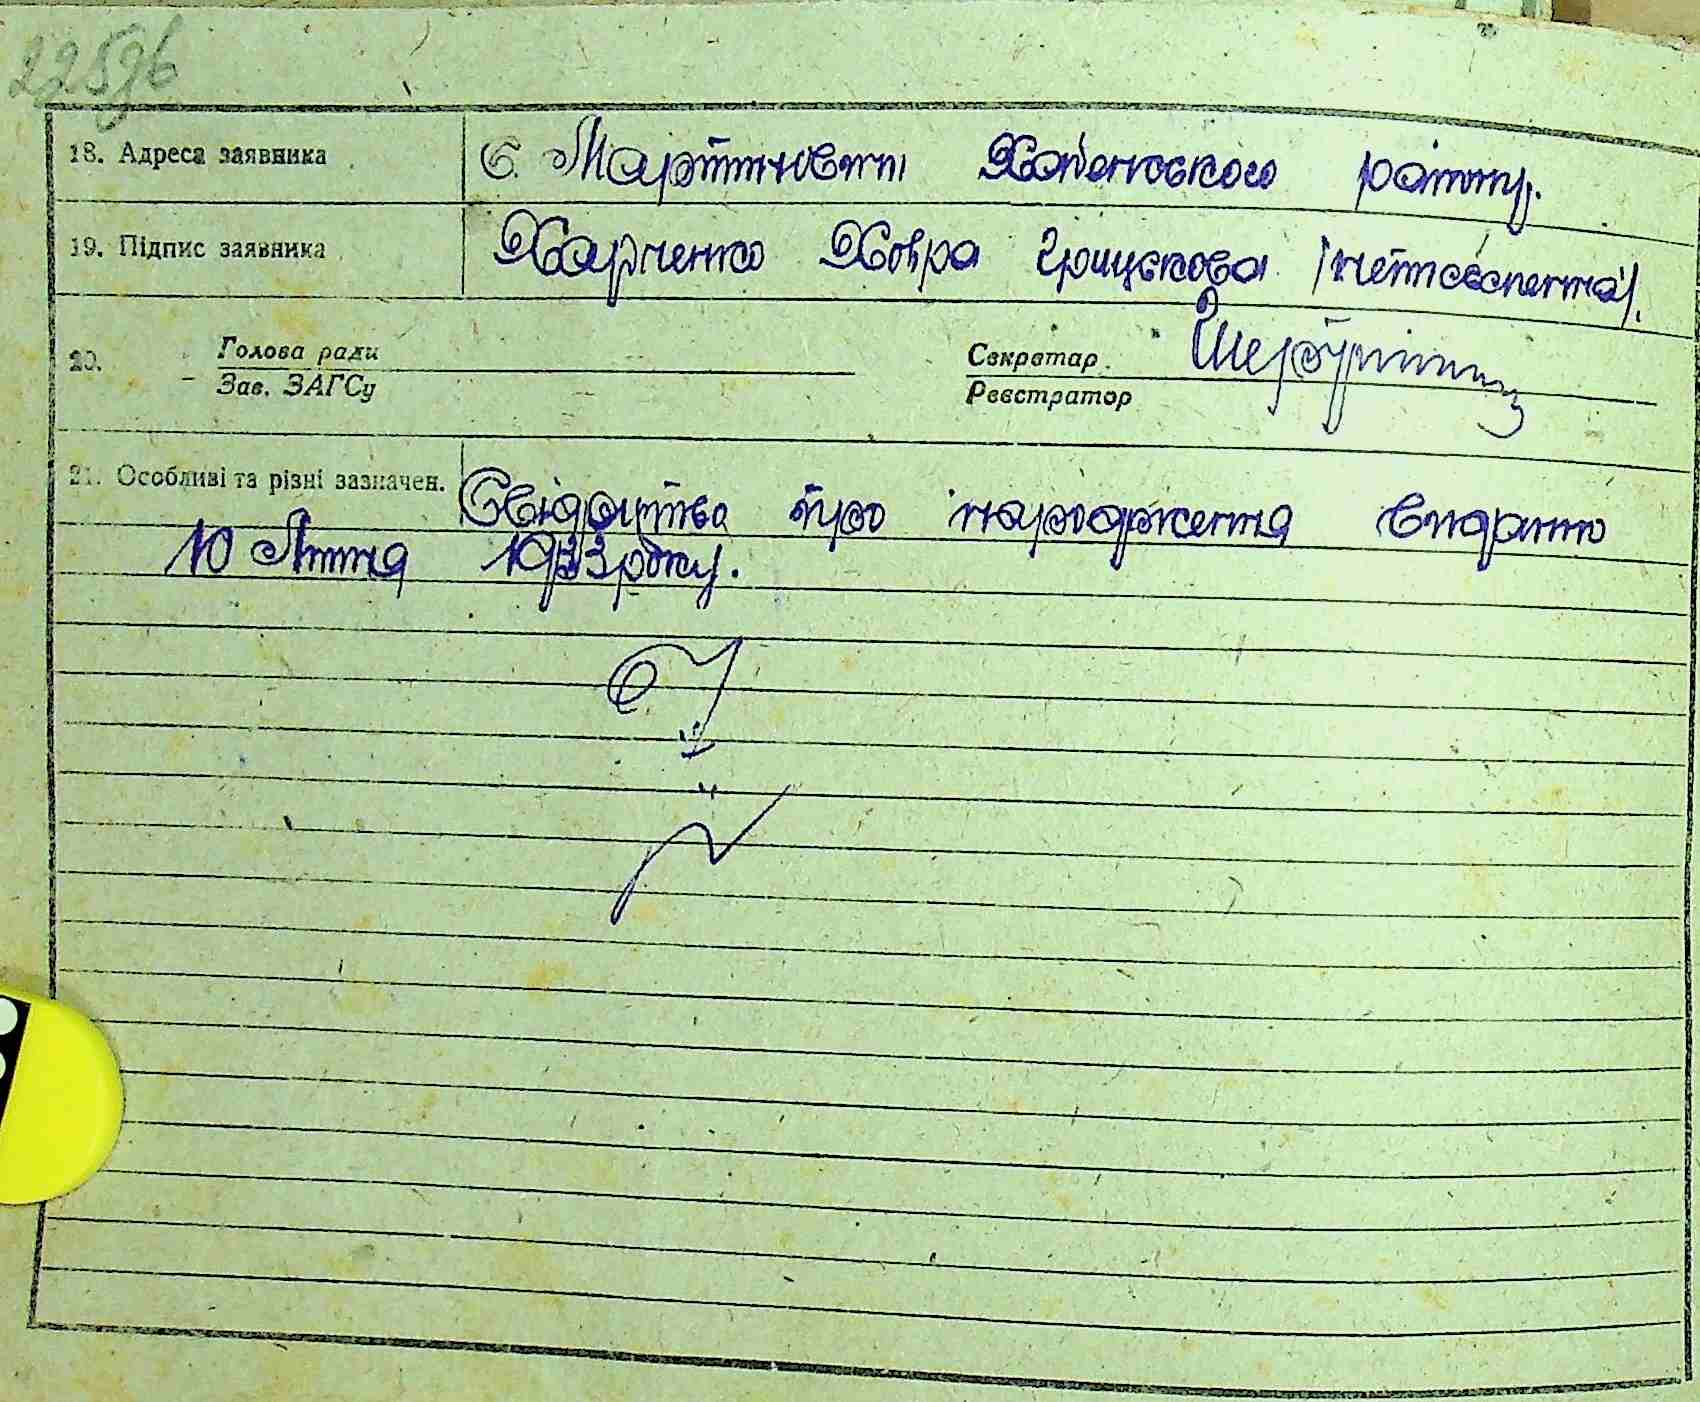 22596
18. Адреса заявника С. Мартиновичі Хабенського району.
19. Підпис заявника Харченко Ховра Грицькова /неписьменна/.
20. Голова ради Секретар
Зав. ЗАГСу Реєстратор
21. Особливі та різні зазначен. Свідоцтво про народження видано
10 Липня 1933 року.